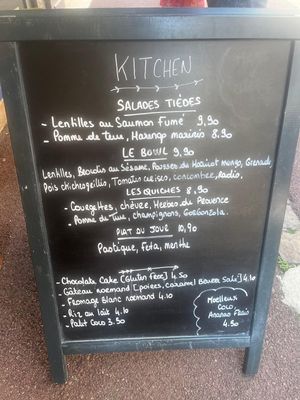 KITCHEN
SALADES TIÈDES
- Lentilles au Saumon Fumé 9,90
- Pomme de Terre, Harengs marinés 8.90
LE BOWL 9,90
Lentilles, Brocolis au Sésame, Pousses de Haricot mungo, Grenade
Pois chiches grillés, Tomates cerises, concombre, Radis,
LES QUICHES 8,90
- Courgettes, chèvre, Herbes de Provence
- Pomme de Terre, champignons, Gorgonzola.
PLAT DU JOUR 10,90
Pastèque, Feta, menthe
- Chocolate Cake [Gluten Free] 4.50
- Gâteau normand [poires, caramel Beurre Salé] 4.10
- Fromage Blanc normand 4.10
- Riz au lait 4.10
- Palet Coco 3.50
Moelleux
COCO
Ananas Frais
4.50